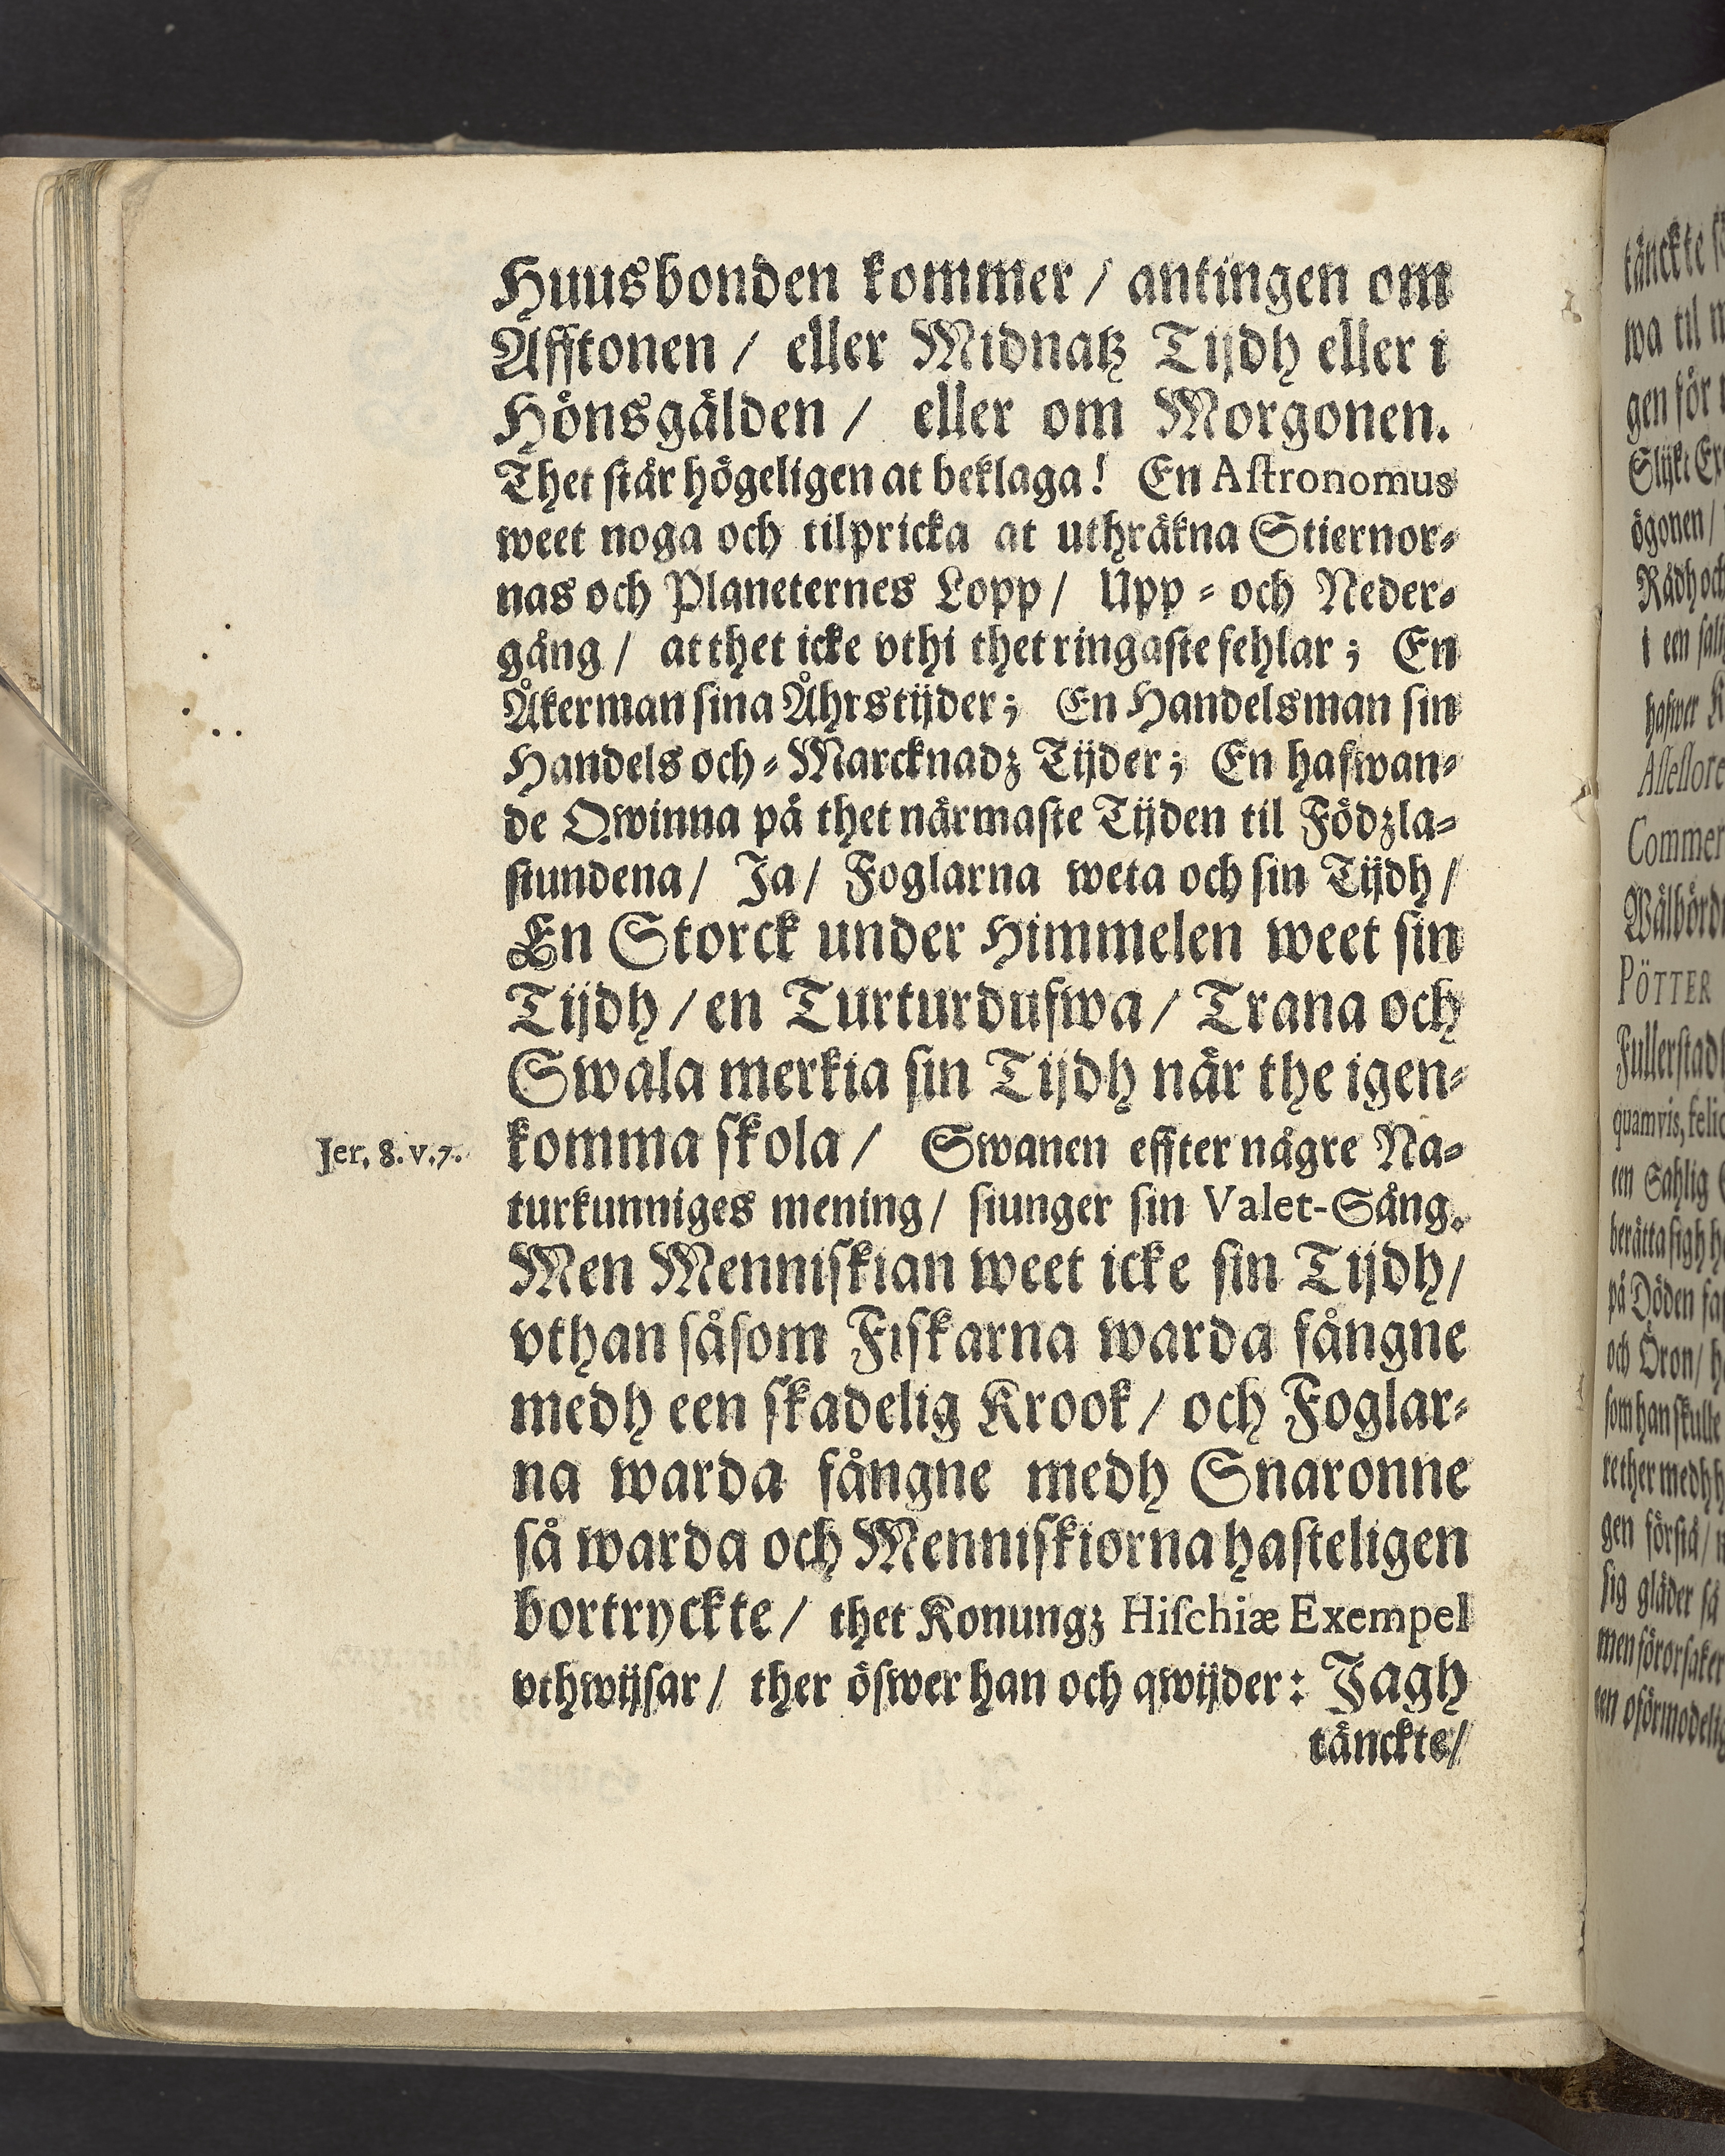 Huusbonden kommer / antingen om
Afftonen / eller Midnatz Tijdh eller i
Hönsgälden / eller om Morgonen.
Thet står högeligen at beklaga! En Astronomus
weet noga och tilpricka at uthräkna Stiernor-
nas och Planeternes Lopp / Upp- och Neder-
gång / at thet icke vthi thet ringaste fehlar; En
Åkerman sina Åhrstijder; En Handelsman sin
Handels och-Marcknadz Tijder; En hafwan-
de Qwinna på thet närmaste Tijden til Födzla-
stundena / Ja / Foglarna weta och sin Tijdh /
En Storck under Himmelen weet sin
Tijdh / en Turturdufwa / Trana och
Swala merkia sin Tijdh när the igen-
Jer. 8. v. 7. komma skola / Swanen effter någre Na-
turkunniges mening / siunger sin Valet-Sång.
Men Menniskian weet icke sin Tijdh /
vthan såsom Fiskarna warda fångne
medh een skadelig Krook / och Foglar-
na warda fångne medh Snaronne
så warda och Menniskiorna hasteligen
bortryckte / thet Konungz Hischiæ Exempel
vthwijsar / ther öfwer han och qwijder: Jagh
tänckte /
tänckte
wa til
gen för
Slijkt
ögonen /
Rådh och
i een
hafwer
Commer
PÖTTER
Fullerstadh
quamvis,
een Sahlig
berätta sigh
på Döden
och Öron /
som han skulle
re ther medh
gen förstå /
sig gläder så
men förorsaker
een oförmodelig